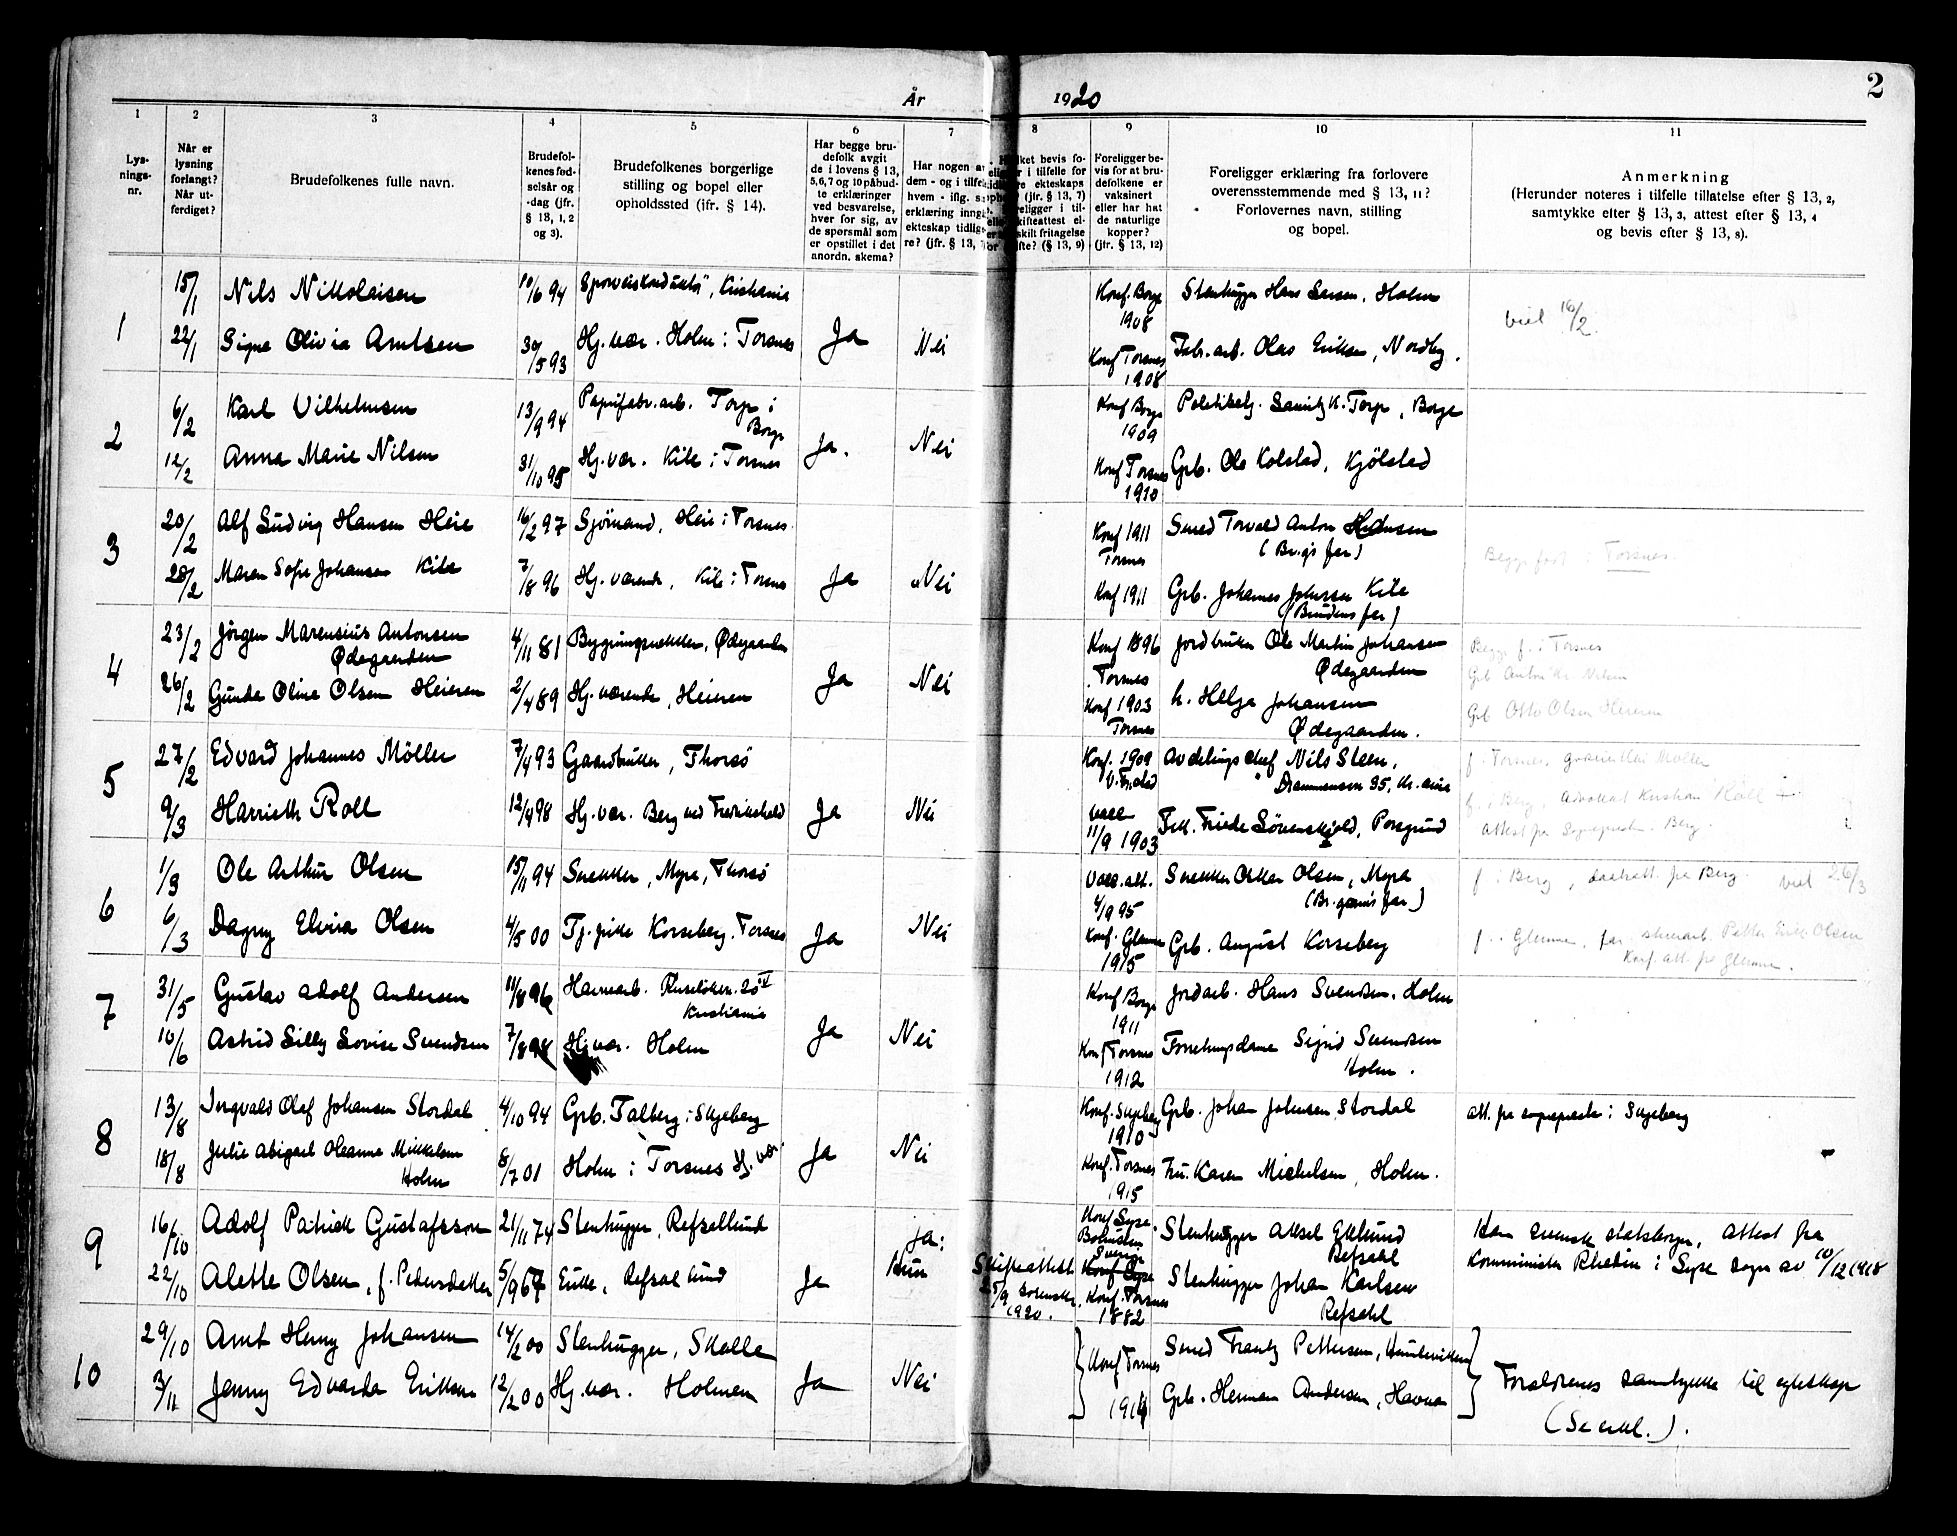 2
År 1920
1 2 3 4 5 6 7 8 9 10 11
Lys-
nings-
nr.
Når er
lysning
forlangt?
Når ut-
ferdiget?
Brudefolkenes fulle navn.
Brudefol-
kenes fød-
selsår og
-dag (jfr.
§ 13, 1, 2
og 3).
Brudefolkenes borgerlige
stilling og bopel eller
opholdssted (jfr. § 14).
Har begge bru-
defolk avgit
de i lovens § 13,
5, 6, 7 og 10 påbud-
te erklæringer
ved besvarelse,
hver for sig, av
de spørsmål som
er opstillet i det
anordn. skema?
Har nogen av
dem - og i tilfælde
hvem - iflg.
erklæring inngåt
ekteskap tidlige-
re? (jfr. § 13,
ket bevis fo-
r i tilfelle for
re ekteskaps
(jfr. § 13, 7)
religger i til-
skifteattest el-
skilt fritagelse
fte? (§ 13, 9)
Foreligger be-
vis for at bru-
defolkene er
vaksinert
eller har hat
de naturlige
kopper?
(jfr. § 13, 12)
Foreligger erklæring fra forlovere
overensstemmende med § 13, 11?
Forlovernes navn, stilling
og bopel.
Anmerkning
(Herunder noteres i tilfelle tillatelse efter § 13, 2,
samtykke efter § 13, 3, attest efter § 13, 4
og bevis efter § 13, 8).
1 15/1 Nils Nikolaisen 10/6 94 Sporveiskonduktør, Kristiania Konf. Borge 1908 Stenhugger Hans Larsen, Holm viel 16/2.
22/1 Signe Olivia Arntsen 30/5 93 Hj. vær. Holm i Torsnes Ja Nei Konf Torsnes 1908 Fabr. arb. Olas Eriksen, Nordby.
2 6/2 Karl Vilhelmsen 13/9 94 Papirfabr. arb. Torp i Borge Konf Borge 1909 Torp, Borge
12/2 Anna Marie Nilsen 31/10 95 Hj. vær. Kile i Torsnes Ja. Nei Konf Torsnes 1910 Grb. Ole Kolstad, Kjölstad
3 20/2 Alf Ludvig Hansen Heie 16/2 97 Sjömand, Heie i Torsnes. Konf 1911 Torsnes Smed Torvald Anton Hansen (Br.gs far) Begge født i Torsnes.
28/2 Maren Sofie Johansen Kile 7/8 96 Hj. værende, Kile i Torsnes Ja Nei Konf 1911 Grb. Johannes Johansen Kile (Brudens far)
4 23/2 Jörgen Marensius Antonsen Ødegaarden 4/11 81 Bygningssnekker, Ødegaarden Konf 1896 Torsnes Jordbruker Ole Martin Johansen Ødegaarden Begge f. i Torsnes
Grb Anton Kr. Nilsen
26/2 Gunda Oline Olsen Heieren 2/4 89 Hj. værende, Heieren Ja Nei Konf 1903 Torsnes h. Helga Johansen Ødegaarden. Grb Otto Olsen Heieren
5 27/2 Edvard Johannes Möller 7/4 93 Gaardbruker, Thorsö Konf. 1909 Avdelingschef Nils Steen, Drammensvn 35, Kr. ania f. Torsnes, Möller
9/3 Harrieth Roll 12/4 98 Hj. vær. Berg ved Fredrikshald Ja Nei vacc 11/9 1903 Frk. Friede Sörenskjold, Porsgrund f. i Berg, Advokat Kristian Roll
attest fra Sogneprest i Berg
6 1/3 Ole Arthur Olsen 15/11 94 Snekker, Myra, Thorsö Vacc. att. 4/9 95 Snekker Oskar Olsen, Myra (Br. goms far) f i Berg, daabsatt. fra Berg viel 26/3
6/3 Dagny Elvira Olsen 4/5 00 Tj. pike Korseberg. Torsnes Ja Nei Konf. Glemme 1915 Grb. August Korseberg f. i Glemme, far Petter Erik Olsen
Konf. att. fra Glemme.
7 31/5 Gustav Adolf Andersen 11/8 96 Havnearb. Ruselökkv. 20 IV Kristiania Konf Borge 1911 Jordarb. Hans Svendsen. Holm
10/6 Astrid Lilly Lovise Svendsen 7/8 98 Hj. vær. Holm Ja Nei Konf Torsnes 1912 Forretningsdame Sigrid Svendsen Holm.
8 13/8 Ingvald Olaf Johansen Stordal 4/10 94 Grb. Talberg i Skjeberg Konf. Skjeberg 1910 Grb. Johan Johnsen Stordal att. fra sogneprest i Skjeberg
18/8 Julie Abigael Oleanna Mikkelsen Holm 8/7 01 Holm i Torsnes Hj. vær. Ja Nei Konf. Torsnes 1915 Fru. Karen Mickelsen, Holm.
9 16/10 Adolf Patrick Gustafsson 21/11 74 Stenhugger, Refsellund Ja: Konf Sverige Stenhugger Aksel Eklund Refsahl Han svensk statsborger, attest fra
Komminister Rhedin i sogn av 10/12 1918
22/10 Alette Olsen, f. Pedersdatter 5/9 67 Enke, Refsal lund Ja Hun Skifteattest 25/9 sorenskr. 1920. Konf. Torsnes 1882 Stenhugger Johan Karlsen Refsahl
10 29/10 Arnt Henry Johansen 14/2 00 Stenhugger, Skolle Smed Frantz Pettersen,
Foreldrenes samtykke til egteskap
3/11 Jenny Edvarda Eriksen 12/2 00 Hj. vær. Holmen Ja Nei Konf Torsnes 1914 Grb. Herman Andersen, Havna